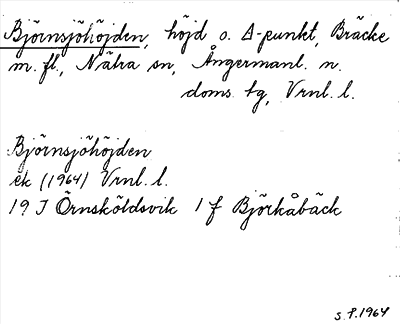 Björnsjöhöjden, höjd o. Δ-punkt, Bräcke
m. fl., Nätra sn, Ångermanl. n.
doms. tg, Vrnl. l.
Björnsjöhöjden
ek (1964) Vrnl. l.
19 J Örnsköldsvik 1 f Björkåbäck
S. P. 1964